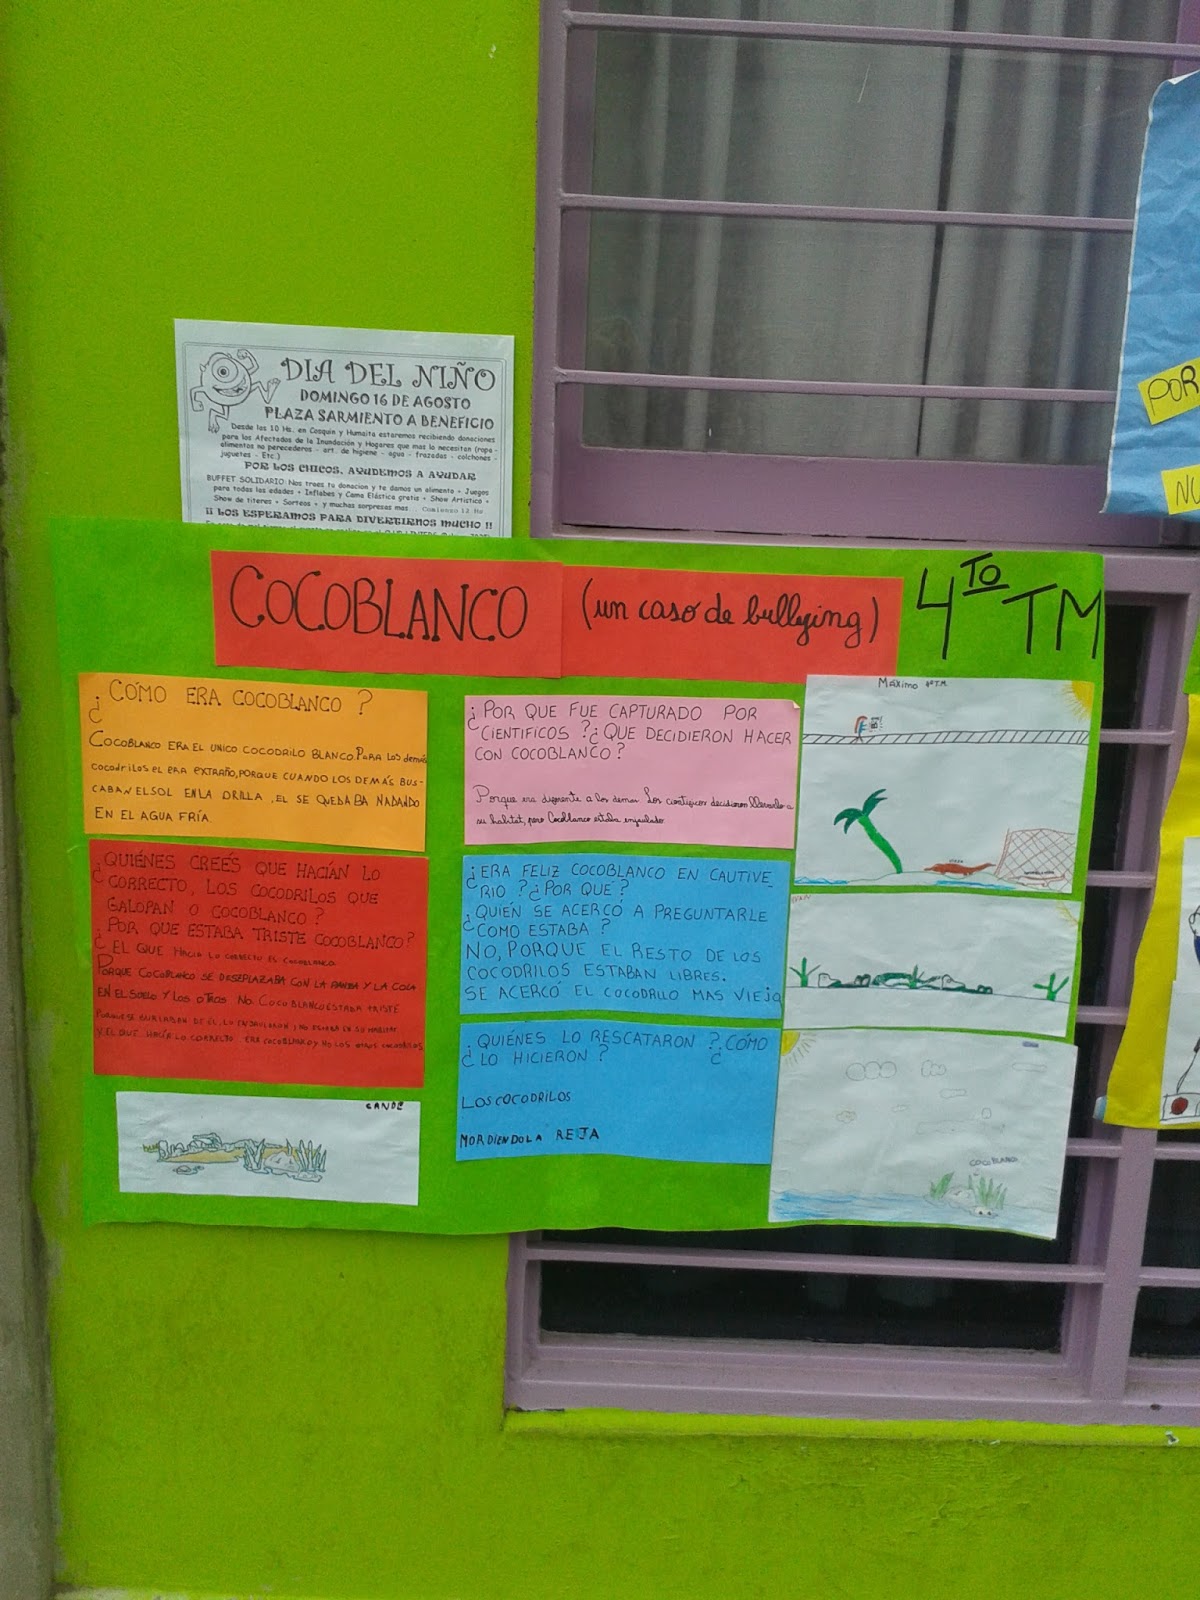 DIA DEL NIÑO
DOMINGO 16 DE AGOSTO
PLAZA SARMIENTO A BENEFICIO
Desde las 10 Hs. en Cosquin y Humaita estaremos recibiendo donaciones
para los Afectados de la Inundación y Hogares que mas lo necesitan (ropa -
alimentos no perecederos - art. de higiene - agua - frazadas - colchones -
juguetes - Etc.)
POR LOS CHICOS, AYUDEMOS A AYUDAR
BUFFET SOLIDARIO: Nos traes tu donacion y te damos un alimento + Juegos
para todas las edades + Inflables y Cama Elástica gratis + Show Artistico +
Show de titeres + Sorteos + y muchas sorpresas mas... Comienzo 12 Hs
¡¡ LOS ESPERAMOS PARA DIVERTIRNOS MUCHO !!
COCOBLANCO (un caso de bullying) 4TO TM
¿CÓMO ERA COCOBLANCO?
COCOBLANCO ERA EL UNICO COCODRILO BLANCO. PARA LOS demás
COCODRILOS EL ERA EXTRAÑO, PORQUE CUANDO LOS DEMÁS BUS-
CABAN EL SOL EN LA ORILLA, EL SE QUEDABA NADANDO
EN EL AGUA FRÍA.
¿QUIÉNES CREÉS QUE HACÍAN LO
CORRECTO, LOS COCODRILOS QUE
GALOPAN O COCOBLANCO?
¿POR QUE ESTABA TRISTE COCOBLANCO?
EL QUE HACIA LO CORRECTO ES COCOBLANCO
PORQUE COCOBLANCO SE DESEPLAZABA CON LA PANZA Y LA COLA
EN EL SUELO Y LOS OTROS NO. COCOBLANCO ESTABA TRISTE
PORQUE SE BURLABAN DE ÉL, LO ENJAULARON Y NO ESTABA EN SU HABITAT
Y EL QUE HACÍA LO CORRECTO ERA COCOBLANCO Y NO LOS OTROS COCODRILOS
CANDE
¿POR QUE FUE CAPTURADO POR
CIENTIFICOS? ¿QUE DECIDIERON HACER
CON COCOBLANCO?
Porque era diferente a los demas. Los científicos decidieron llevarlo a
su habitat, pero Cocoblanco estaba enjaulado.
¿ERA FELIZ COCOBLANCO EN CAUTIVE_
RIO? ¿POR QUE?
¿QUIÉN SE ACERCÓ A PREGUNTARLE
COMO ESTABA?
NO, PORQUE EL RESTO DE LOS
COCODRILOS ESTABAN LIBRES.
SE ACERCÓ EL COCODRILO MAS VIEJO
¿QUIÉNES LO RESCATARON? ¿CÓMO
LO HICIERON?
LOS COCODRILOS
MORDIENDO LA REJA
Máximo 4º T.M.
IVAN
COCOBLANCO
POR
NU